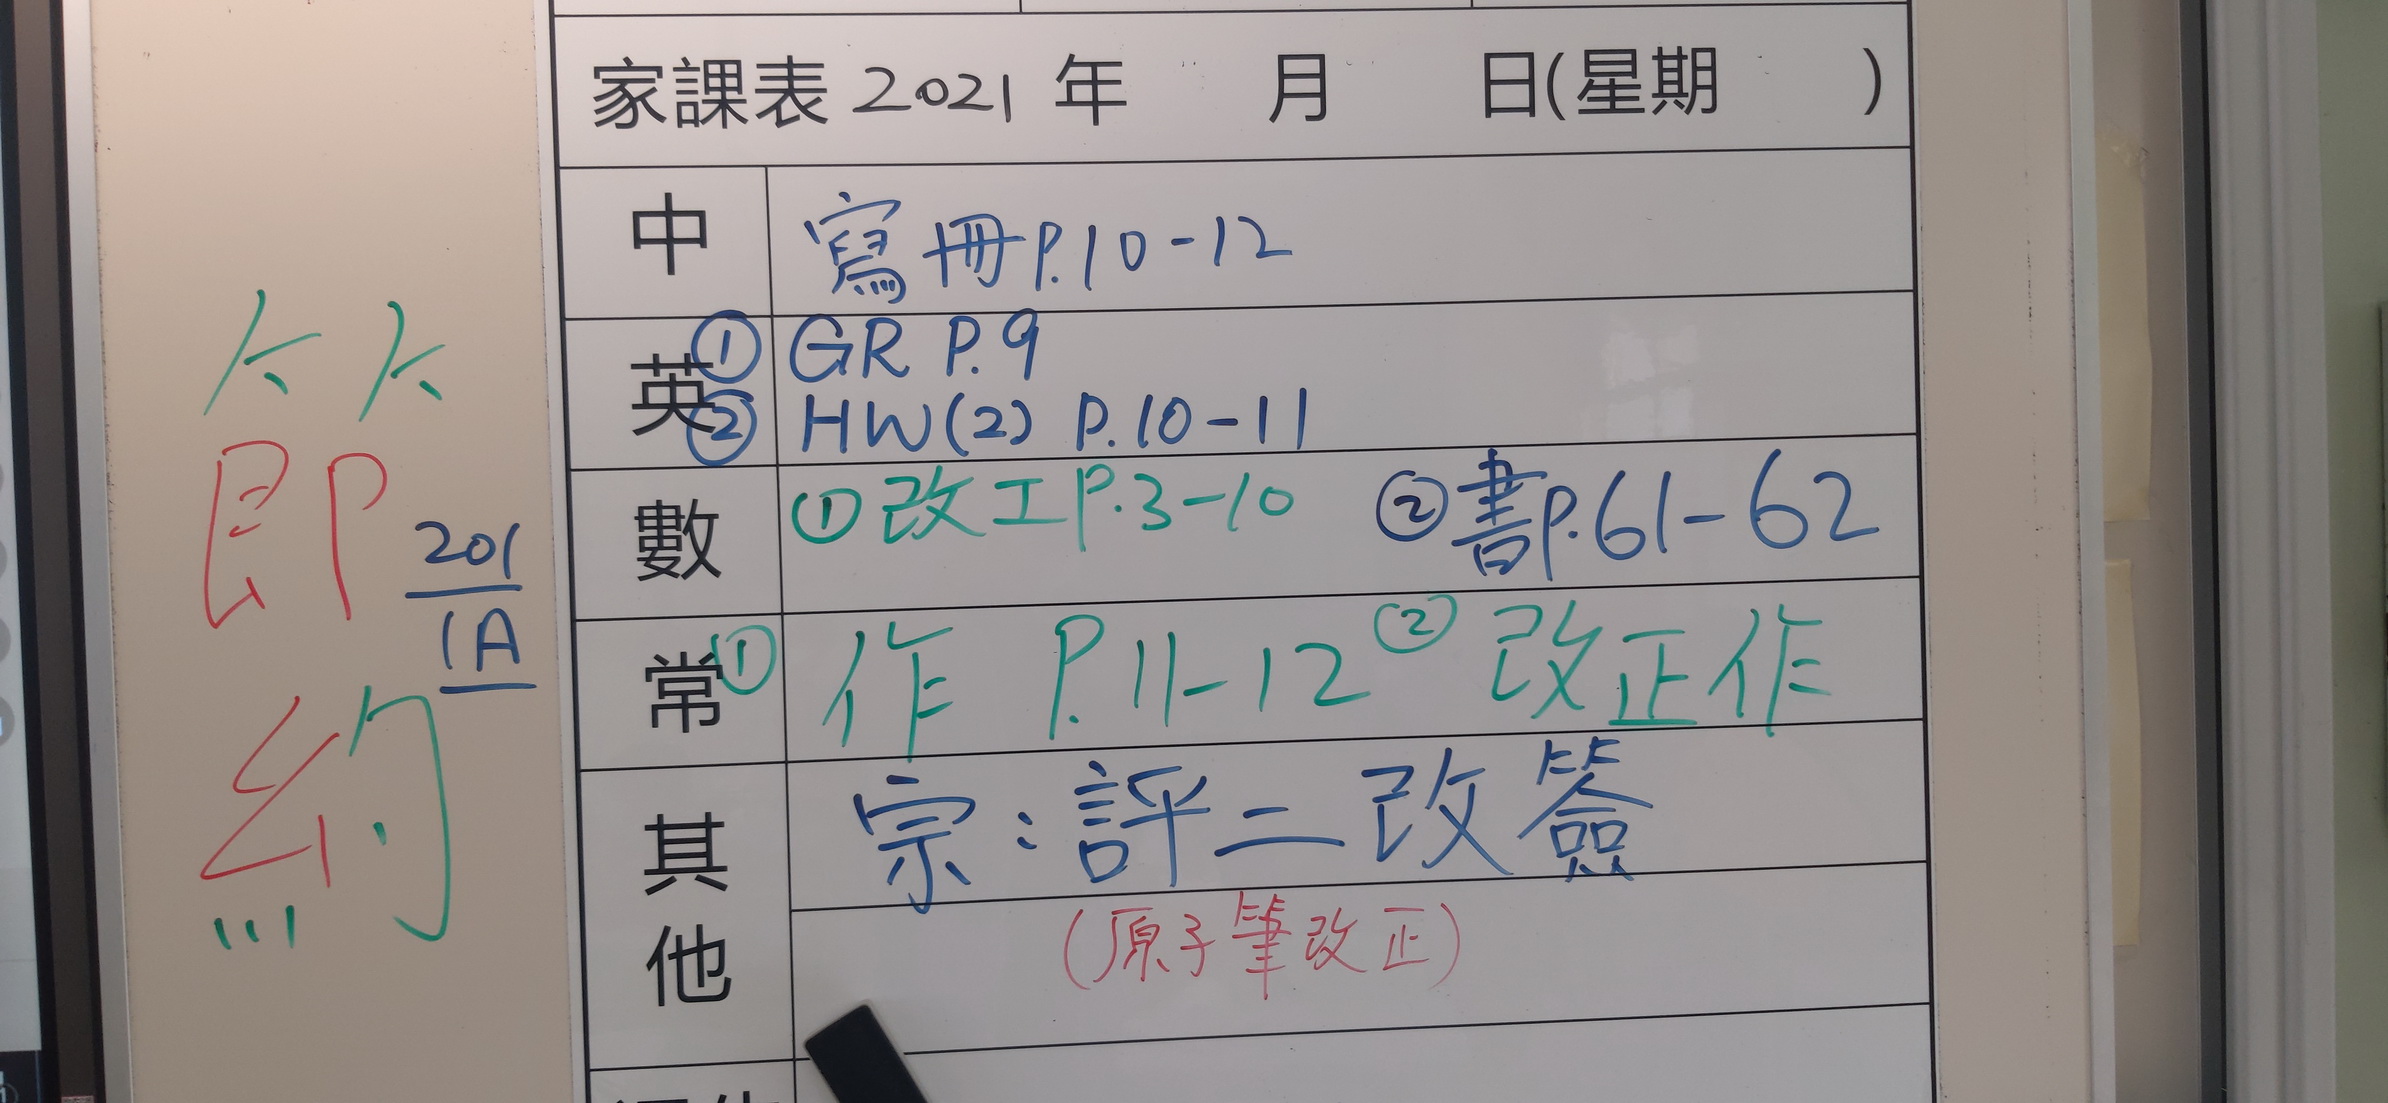 家課表 2021 年 月 日(星期 )
中 寫冊P.10-12
英 ① GR P.9
② HW(2) P.10-11
數 ①改工P.3-10 ②書P.61-62
常 ① 作 P.11-12 ② 改正作
其他 宗:評二改簽
(原子筆改正)
節
約
201
1A